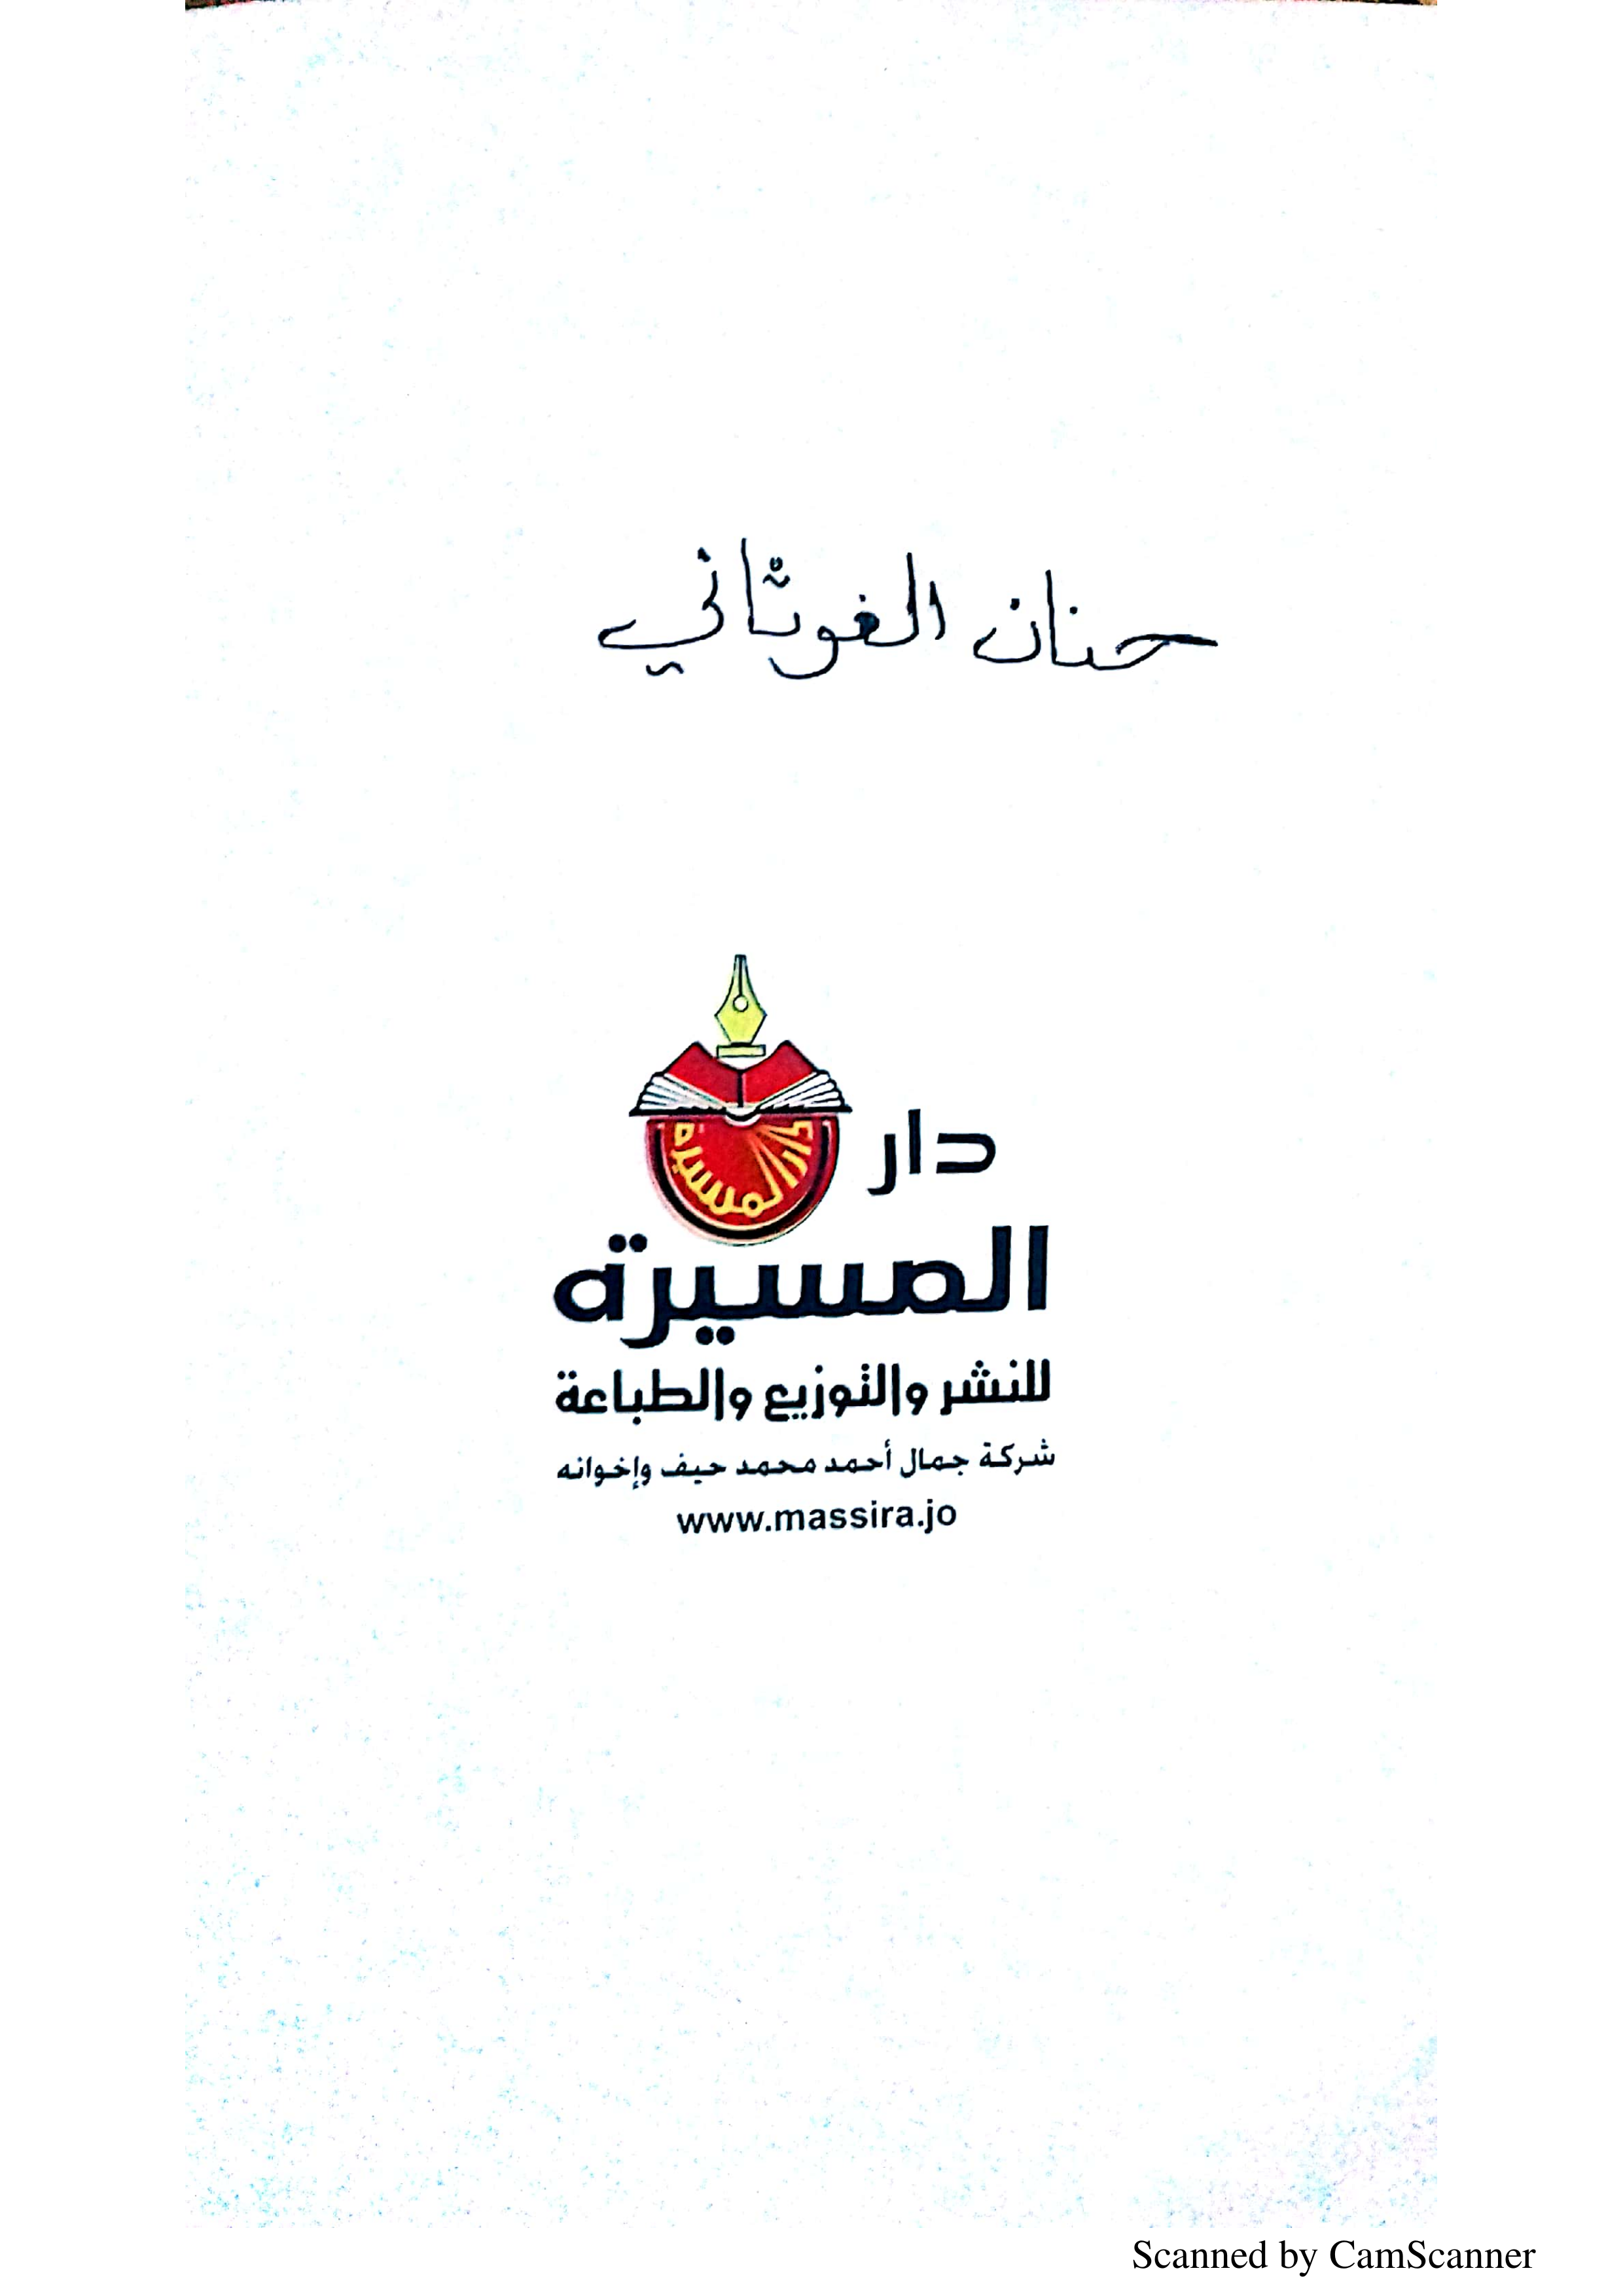 حنان الغوثاني
دار المسيرة
دار
المسيرة
للنشر والتوزيع والطباعة
شركة جمال أحمد محمد حيف وإخوانه
www.massira.jo
Scanned by CamScanner